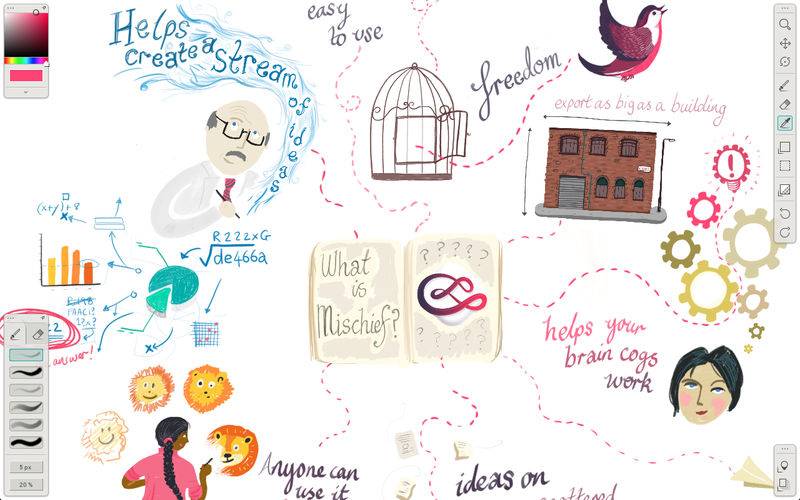 Helps
create a stream
of ideas
easy
to use
freedom
export as big as a building
R222xG
de466a
What
is
Mischief?
helps your
brain cogs
work
answer!
Anyone can
use it
ideas on
scattered
5 px
20 %